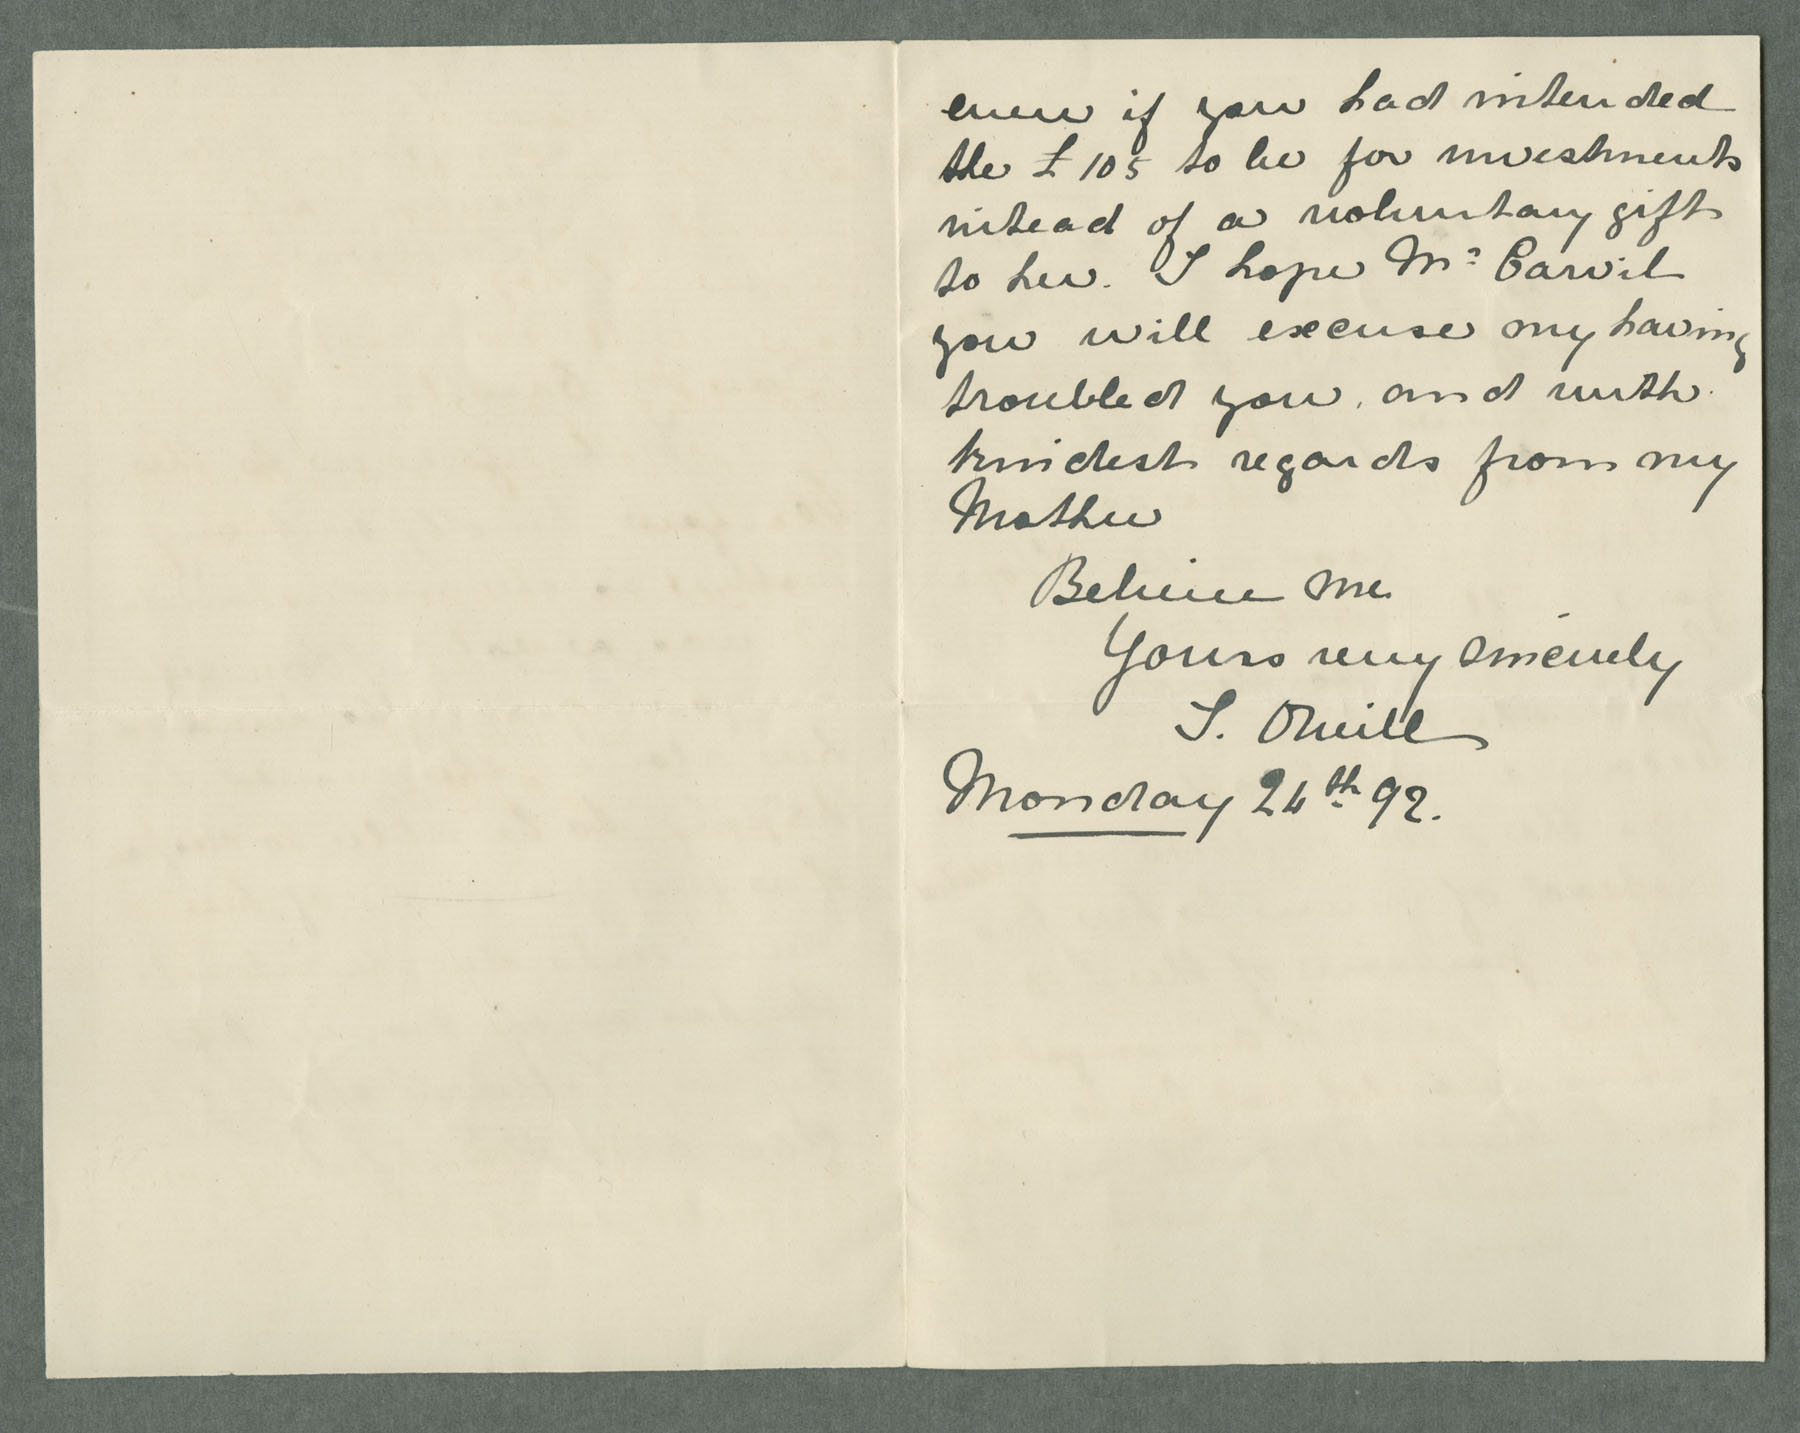 even if you had intended
the £105 to be for investments
intead of a voluntary gift
to her. I hope Mr Carvil
you will excuse my having
troubled you, and with
kindest regards from my
Mother
Believe me
Yours very sincerely
S. ONeill
Monday 24th 92.